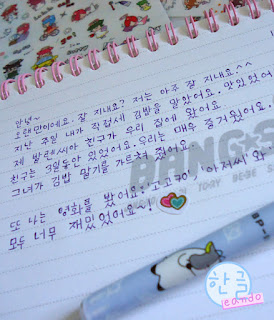 안녕~
오랜만이에요. 잘 지내요? 저는 아주 잘 지내요.^^
지난 주일 내가 직접세 김밥을 말았어요. 맛있었어
제 발렌씨아 친구가 우리 집에 왔어요.
친구는 3일동안 있었어요. 우리는 매우 즐거웠어요.
그녀가 김밥 말기를 가르쳐 줬어요.
또 나는 영화를 봤어요: '고고70', '아저씨' 와
모두 너무 재밌었어요~!
BANG
TOBY
한글
leando